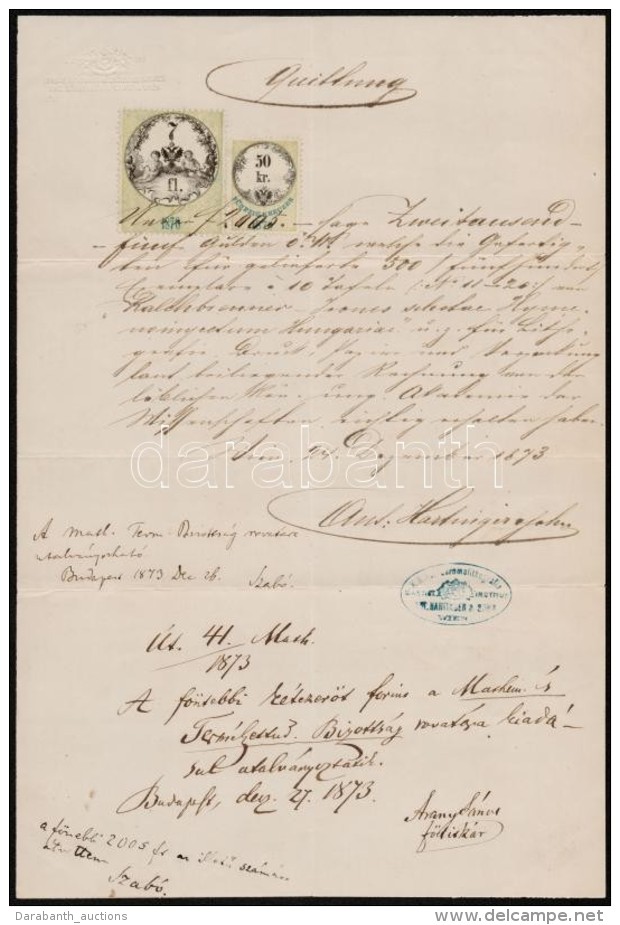 Quittung
7
fl.
50
kr.
1870
f 2005.— sage Zweitausend-
fünf Gulden ö.W. welche die Gefertig-
ten für gelieferte 500 / fünfhundert
Exemplare à 10 Tafeln (: N° 11–20 :) von
Kalchbrenner — Icones selectae Hyme-
nomycetum Hungariae" u. z. für Litho-
grafie, Druck, Papier und
laut beiliegender Rechnung von der
löblichen ung. Akademie der
Wissenschaften richtig erhalten haben.
Wien 24 Dezember 1873
Ant. Hartinger & Sohn
darabanth
A math. Term. Bizottság rovatára
utalványozható
Budapest 1873 Dec 26. Szabó.
INSTITUT
ANT. HARTINGER & SOHN
WIEN
Üt. 41. Math.
1873
A föntebbi kétezeröt forint a Mathem. és
Természettud. Bizottság rovatára kiadá-
sul utalványoztatik.
Budapest, dez. 27. 1873.
Arany János
főtitkár
a föntebbi 2005 ft az illető számára
átvettem
Szabó.
Darabanth_auctions
www.delcampe.net